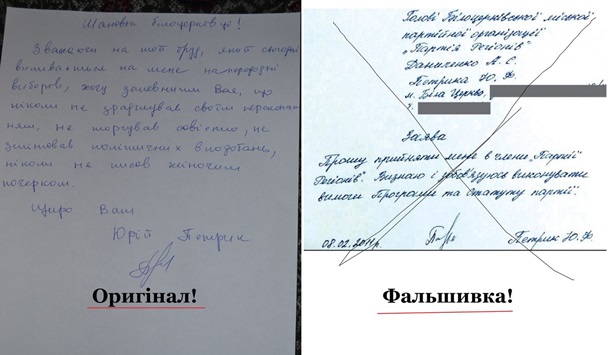 Шановні білоцерківці!
Зважаючи на той бруд, який сьогодні
виливається на мене напередодні
виборів, хочу запевнити Вас, що
ніколи не зраджував своїм переконан-
ням, не торгував совістю, не
змінював політичних вподобань,
ніколи не писав жіночим
почерком.
Щиро Ваш
Юрій Петрик
Оригінал!
Голові Білоцерківської міської
партійної організації
"Партія Регіонів"
Даниченко А. С.
Петрика Ю. Ф.
м. Біла Церква,
Заява
Прошу прийняти мене в члени "Партії
Регіонів". Визнаю і зобов'язуюсь виконувати
вимоги Програми та Статуту партії.
08.02.2011р. Петрик Ю. Ф.
Фальшивка!